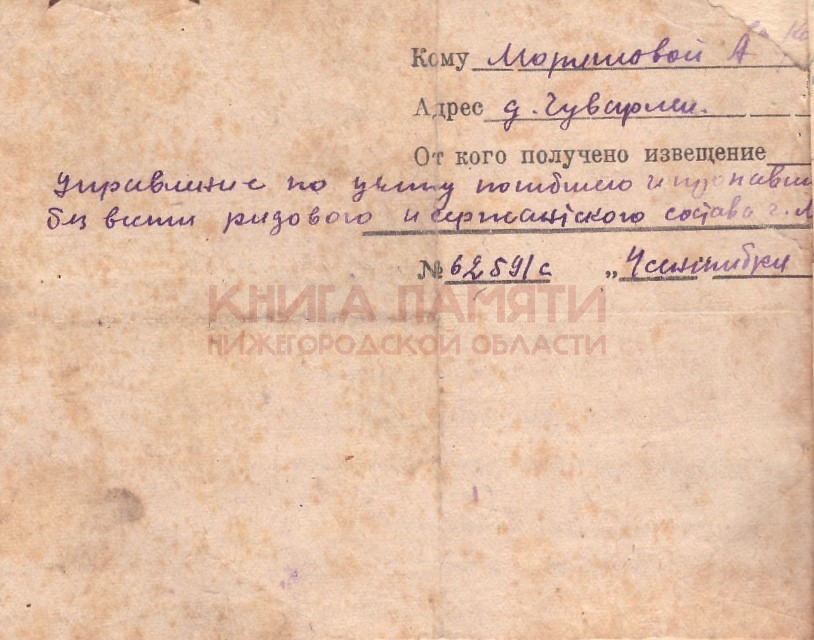 Кому А
Адрес д.
От кого получено извещение
Управление по учету погибшего и пропавш
без вести рядового и сержантского состава г. М
№ 6259/с „4 сентября
КНИГА ПАМЯТИ
НИЖЕГОРОДСКОЙ ОБЛАСТИ